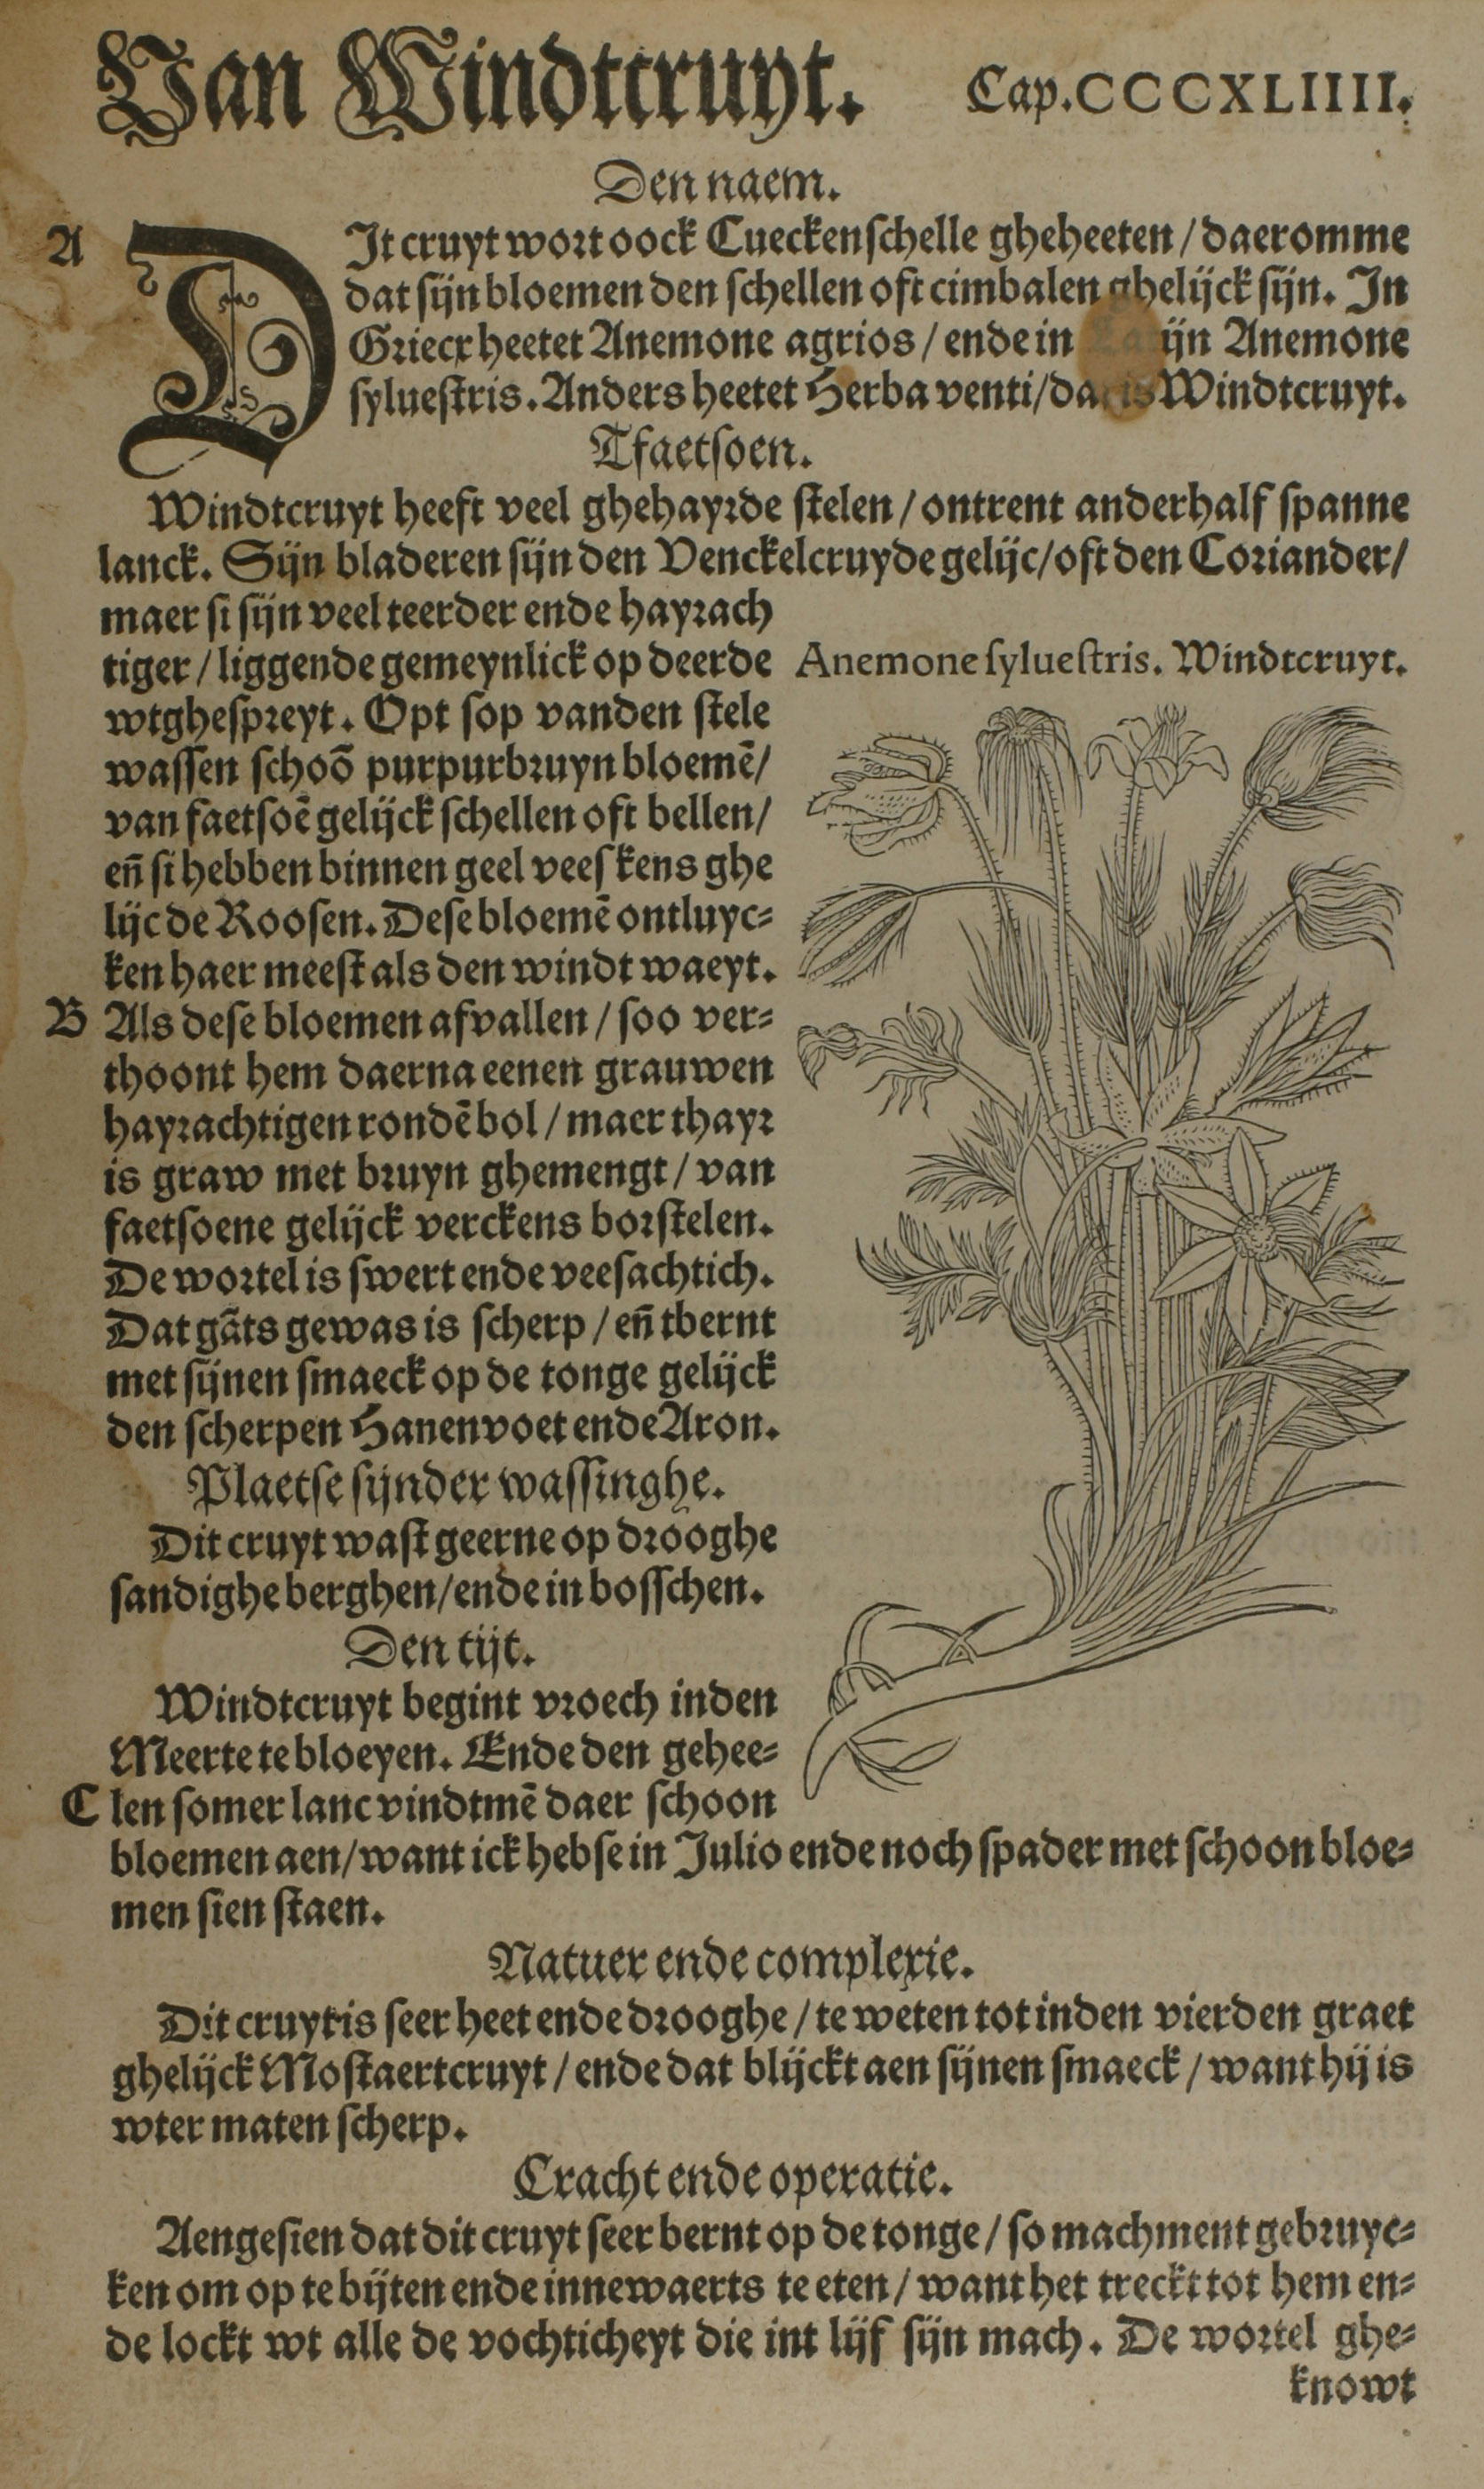 Van Windtcruyt. Cap.CCCXLIIII.
Den naem.
A
DIt cruyt wort oock Cueckenschelle gheheeten / daeromme
dat sijn bloemen den schellen oft cimbalen ghelijck sijn. In
Griecx heetet Anemone agrios / ende in Latijn Anemone
syluestris. Anders heetet Herba venti/dat is Windtcruyt.
Tfaetsoen.
Windtcruyt heeft veel ghehayrde stelen / ontrent anderhalf spanne
lanck. Sijn bladeren sijn den Venckelcruyde gelijc/oft den Coriander/
maer si sijn veel teerder ende hayrach
tiger / liggende gemeynlick op deerde
wtghespreyt. Opt sop vanden stele
wassen schoō purpurbruyn bloemē/
van faetsoē gelijck schellen oft bellen/
eñ si hebben binnen geel veeskens ghe
lijc de Roosen. Dese bloemē ontluyc-
ken haer meest als den windt waeyt.
B Als dese bloemen afvallen / soo ver-
thoont hem daerna eenen grauwen
hayrachtigen rondē bol / maer thayr
is graw met bruyn ghemengt / van
faetsoene gelijck verckens borstelen.
De wortel is swert ende veesachtich.
Dat gāts gewas is scherp / eñ tbernt
met sijnen smaeck op de tonge gelijck
den scherpen Hanenvoet ende Aron.
Plaetse sijnder wassinghe.
Dit cruyt wast geerne op drooghe
sandighe berghen/ende in bosschen.
Den tijt.
Windtcruyt begint vroech inden
Meerte te bloeyen. Ende den gehee-
C len somer lanc vindtmē daer schoon
Anemone syluestris. Windtcruyt.
bloemen aen/want ick hebse in Julio ende noch spader met schoon bloe-
men sien staen.
Natuer ende complexie.
Dit cruyt is seer heet ende drooghe / te weten tot inden vierden graet
ghelijck Mostaertcruyt / ende dat blijckt aen sijnen smaeck / want hij is
wter maten scherp.
Cracht ende operatie.
Aengesien dat dit cruyt seer bernt op de tonge / so machment gebruyc-
ken om op te bijten ende innewaerts te eten / want het treckt tot hem en-
de lockt wt alle de vochticheyt die int lijf sijn mach. De wortel ghe-
knowt